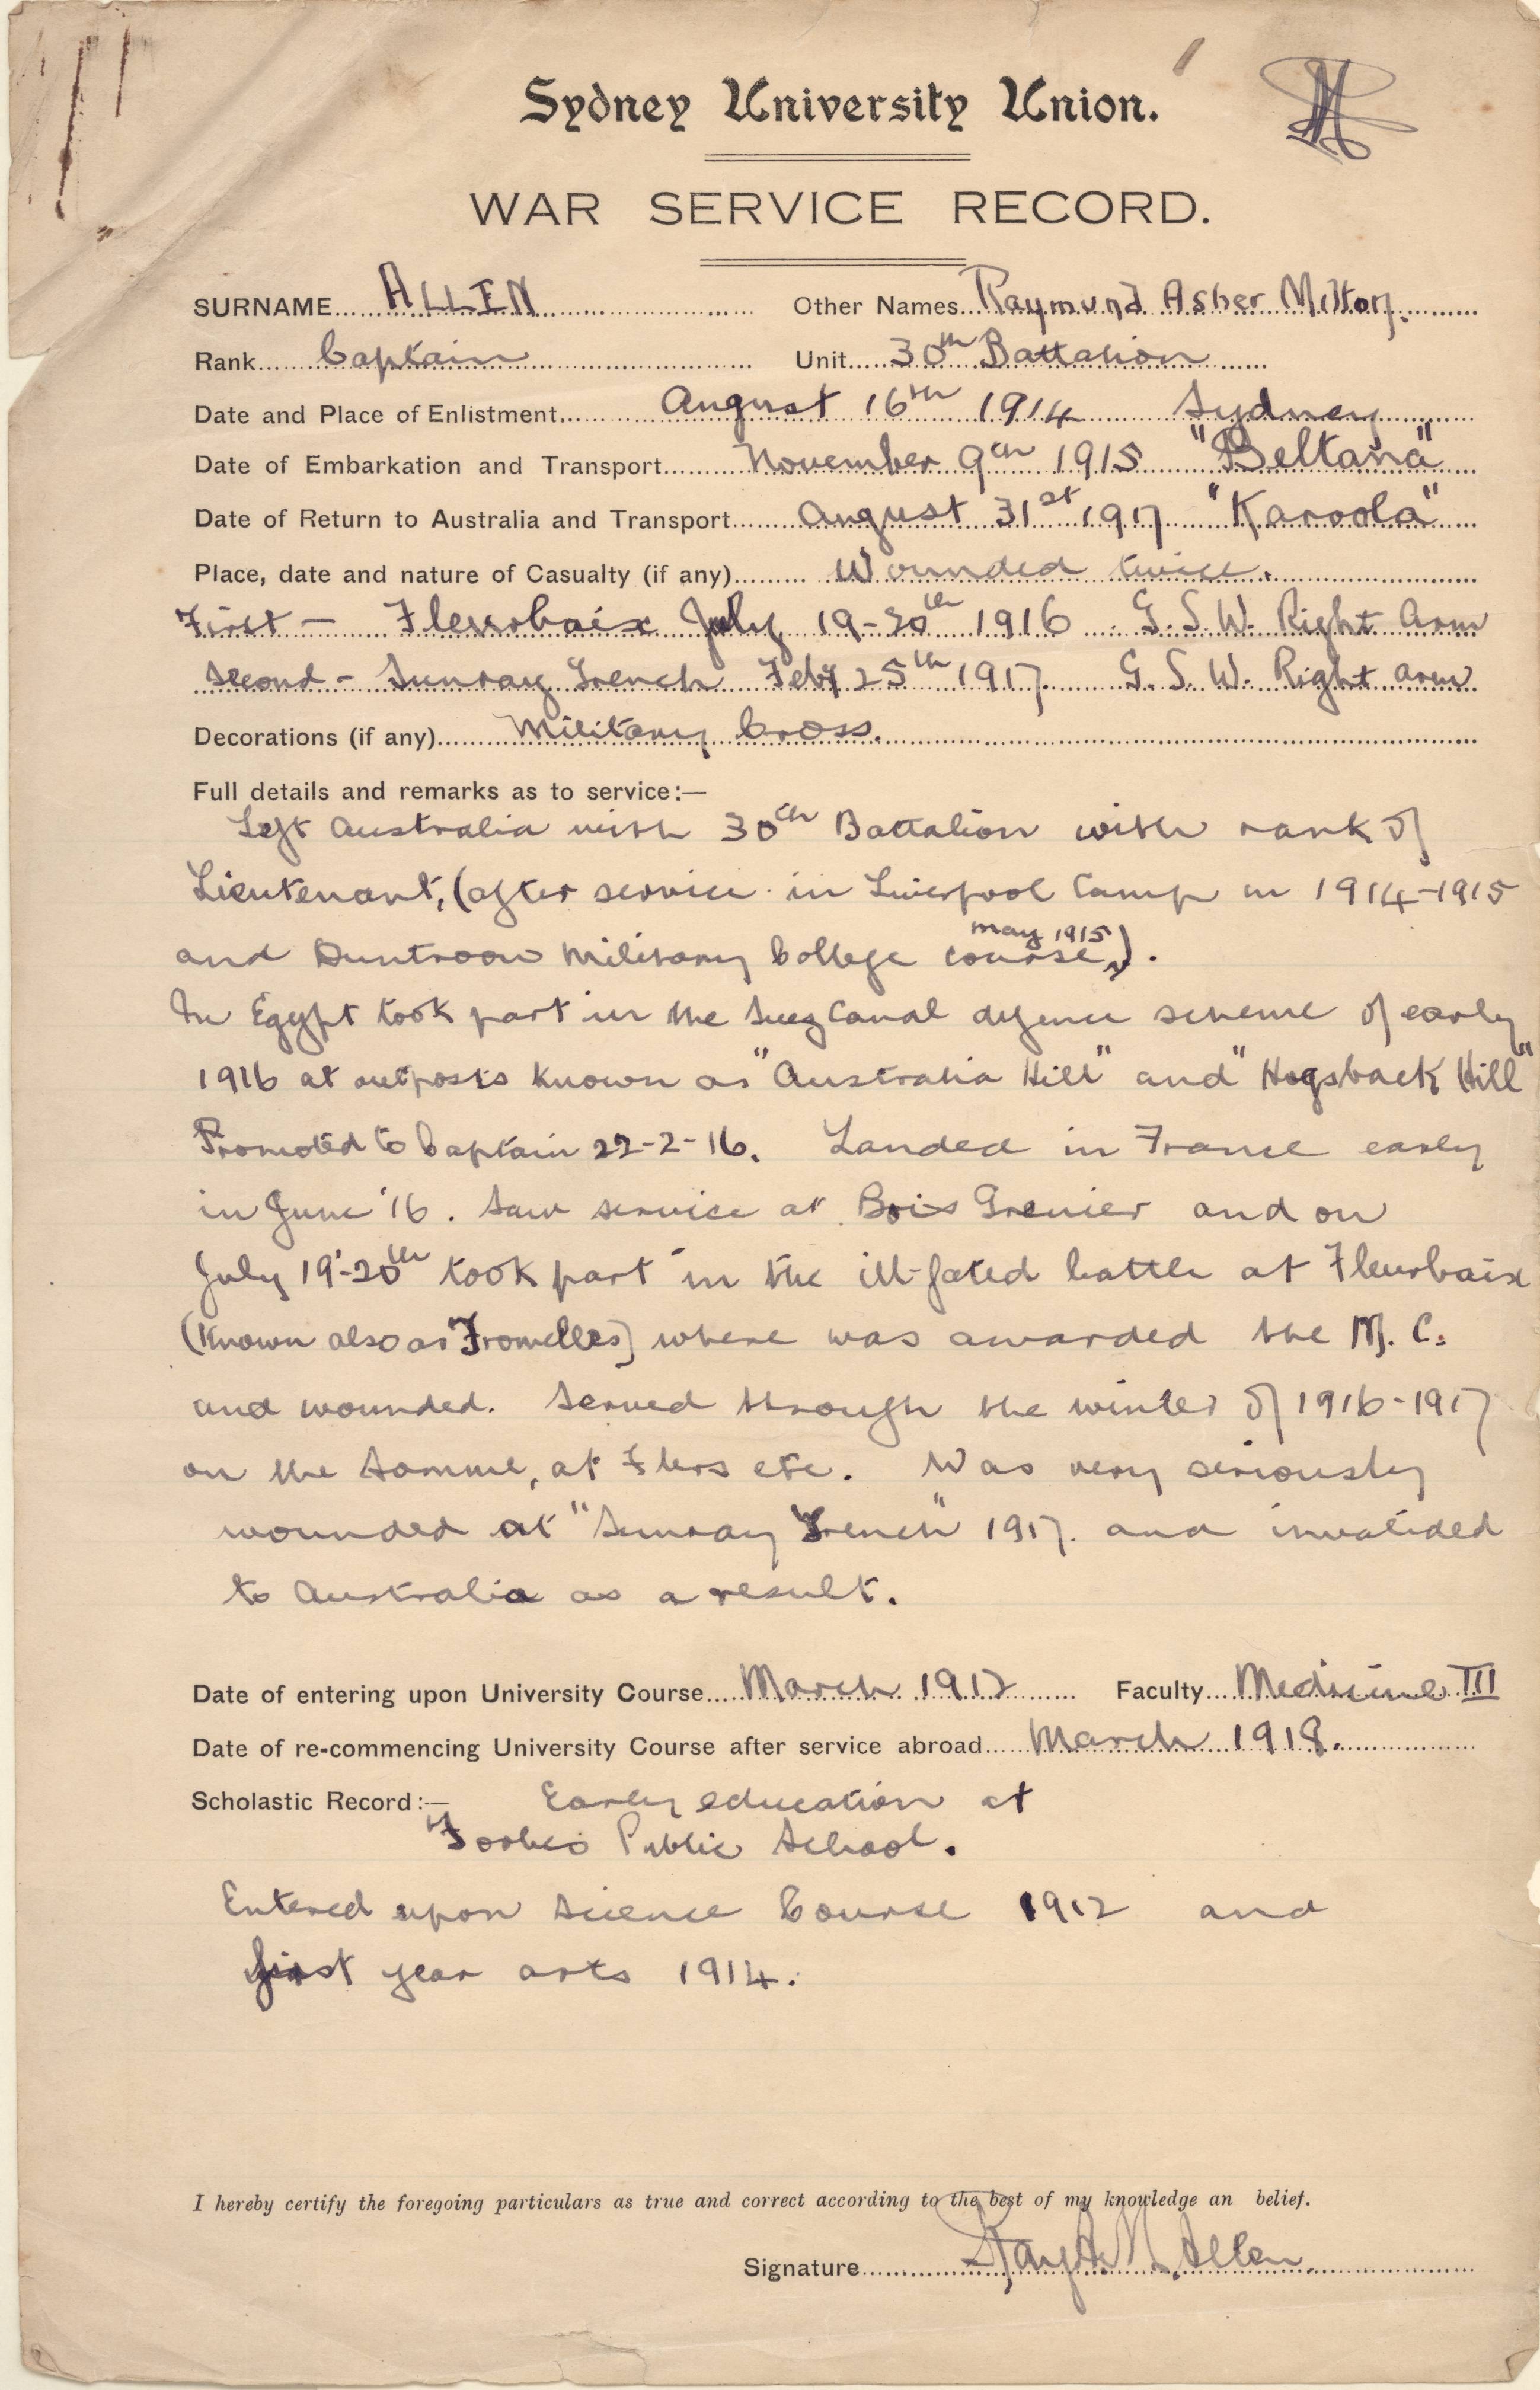 Sydney University Union.
WAR SERVICE RECORD.
SURNAME ALLEN Other Names Raymund Asher Milton.
Rank Captain Unit 30th Battalion
Date and Place of Enlistment August 16th 1914 Sydney
Date of Embarkation and Transport November 9th 1915 "Beltana"
Date of Return to Australia and Transport August 31st 1917 "Karoola"
Place, date and nature of Casualty (if any) Wounded twice.
First - Fleurbaix July 19-20th 1916 G.S.W. Right Arm
Second - Sunray Trench Feby 25th 1917. G.S.W. Right arm
Decorations (if any) Military Cross.
Full details and remarks as to service:—
Left Australia with 30th Battalion with rank of
Lieutenant, (after service in Liverpool Camp in 1914-1915
and Duntroon Military College course, may 1915).
In Egypt took part in the Suez Canal defence scheme of early
1916 at outposts known as "Australia Hill" and "Hogsback Hill"
Promoted to Captain 22-2-16. Landed in France early
in June '16. Saw service at Bois Grenier and on
July 19-20th took part in the ill-fated battle at Fleurbaix
(known also as Fromelles) where was awarded the M.C.
and wounded. Served through the winter of 1916-1917
on the Somme, at Flers etc. Was very seriously
wounded at "Sunray Trench" 1917. and invalided
to Australia as a result.
Date of entering upon University Course March 1912 Faculty Medicine III
Date of re-commencing University Course after service abroad March 1918.
Scholastic Record:— Early education at
Forbes Public School.
Entered upon Science Course 1912 and
first year arts 1914.
I hereby certify the foregoing particulars as true and correct according to the best of my knowledge an belief.
Signature Ray A. M. Allen